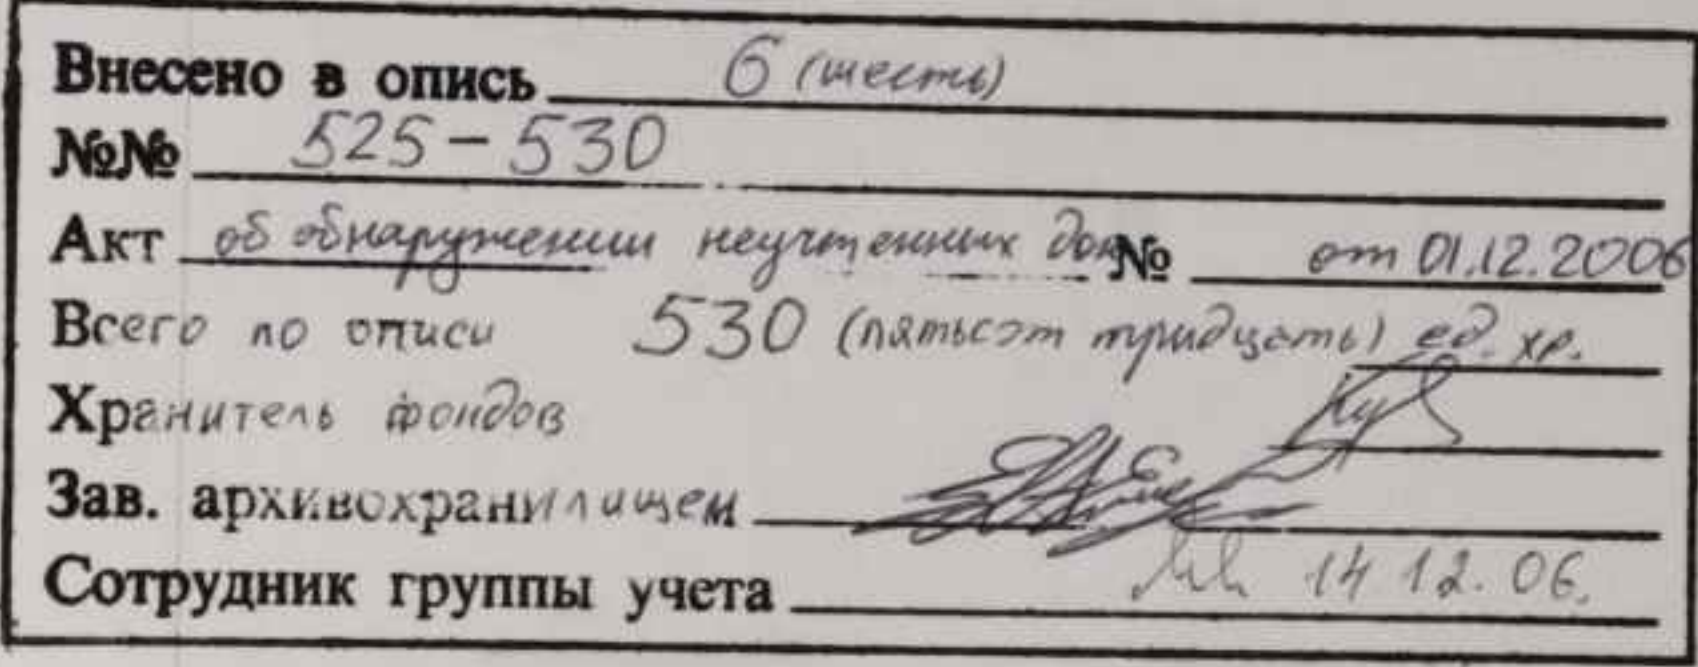 Внесено в опись 6 (шесть)
№№ 525-530
Акт об обнаружении неучтенных док № от 01.12.2006
Всего по описи 530 (пятьсот тридцать) ед. хр.
Хранитель фондов
Зав. архивохранилищем
Сотрудник группы учета 14 12. 06.